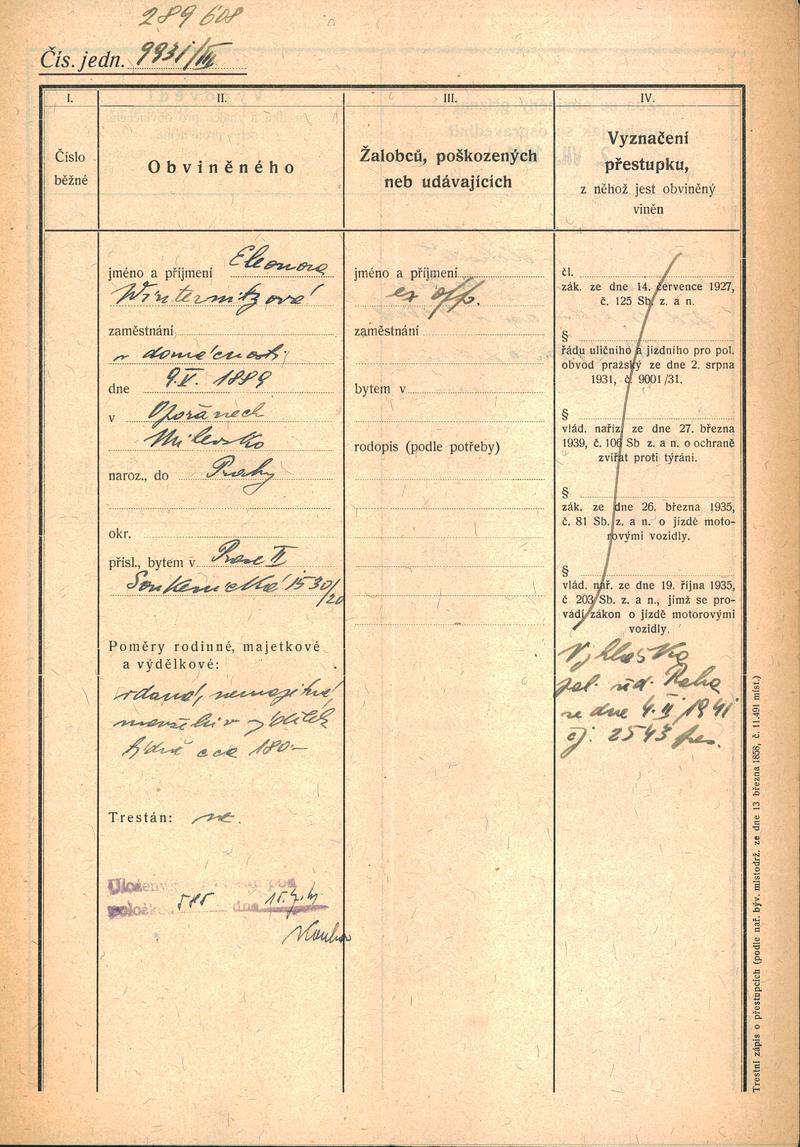 289 608
Čís. jedn. 9931/III
I.
Číslo
běžné
II.
Obviněného
jméno a příjmení Eleonora
Winternitzová
zaměstnání
v domácnosti
dne 9.V. 1889
v Opořanech
Milevsko
naroz., do Prahy
okr.
přísl., bytem v Praze II
Soukenická 1530/20
Poměry rodinné, majetkové
a výdělkové:
vdaná, nemajetná
manželův výdělek
týdně cca 180.-
Trestán: ne.
Uložený pod
položkou 585 dne
III.
Žalobců, poškozených
neb udávajících
jméno a příjmení
ex offo.
zaměstnání
bytem v
rodopis (podle potřeby)
IV.
Vyznačení
přestupku,
z něhož jest obviněný
viněn
čl.
zák. ze dne 14. července 1927,
č. 125 Sb. z. a n.
§
řádu uličního a jízdního pro pol.
obvod pražský ze dne 2. srpna
1931, č. 9001/31.
§
vlád. naříz. ze dne 27. března
1939, č. 106 Sb z. a n. o ochraně
zvířat proti týrání.
§
zák. ze dne 26. března 1935,
č. 81 Sb. z. a n. o jízdě moto-
rovými vozidly.
§
vlád. nař. ze dne 19. října 1935,
č 203 Sb. z. a n., jímž se pro-
vádí zákon o jízdě motorovými
vozidly.
Vyhláška
pol. řed. Praha
ze dne 4. II 1941
čj. 2543 pres.
Trestní zápis o přestupcích (podle nař. býv. místodrž. ze dne 13 března 1858, č. 11.491 míst.)